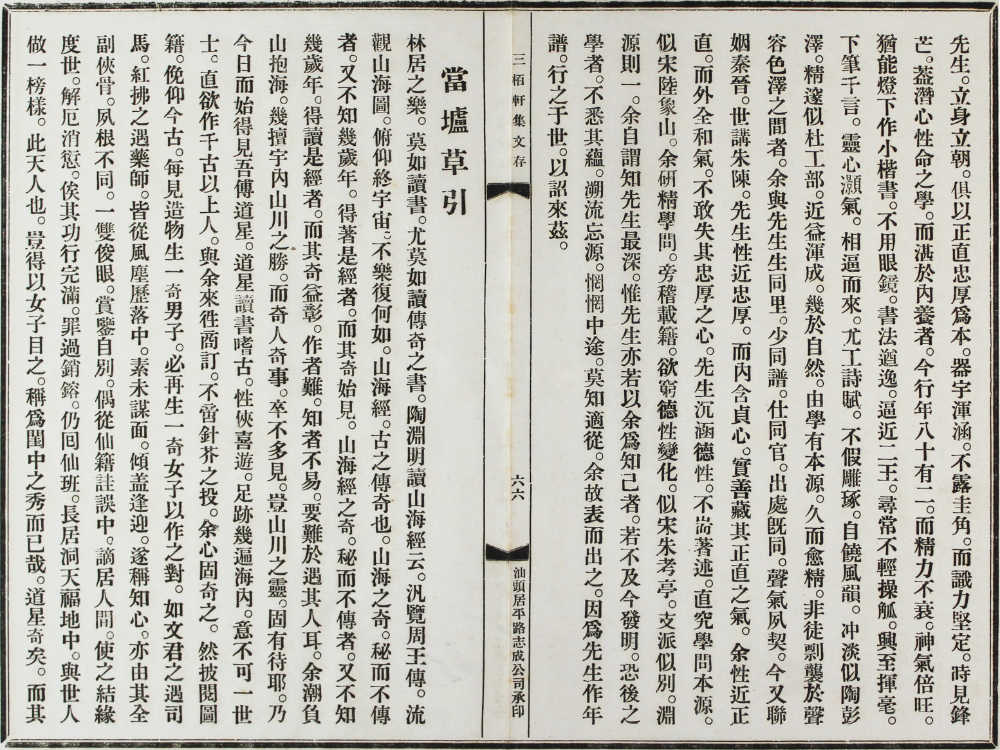 先生。立身立朝。俱以正直忠厚爲本。器宇渾涵。不露圭角。而識力堅定。時見鋒
芒。葢潛心性命之學。而湛於內養者。今行年八十有二。而精力不衰。神氣倍旺。
猶能燈下作小楷書。不用眼鏡。書法遒逸。逼近二王。尋常不輕操觚。興至揮毫。
下筆千言。靈心灝氣。相逼而來。尤工詩賦。不假雕琢。自饒風韻。冲淡似陶彭
澤。精邃似杜工部。近益渾成。幾於自然。由學有本源。久而愈精。非徒剽襲於聲
容色澤之間者。余與先生生同里。少同譜。仕同官。出處旣同。聲氣夙契。今又聯
姻秦晉。世講朱陳。先生性近忠厚。而內含貞心。實善藏其正直之氣。余性近正
直。而外全和氣。不敢失其忠厚之心。先生沉涵德性。不耑著述。直究學問本源。
似宋陸象山。余硏精學問。旁稽載籍。欲窮德性變化。似宋朱考亭。支派似別。淵
源則一。余自謂知先生最深。惟先生亦若以余爲知己者。若不及今發明。恐後之
學者。不悉其蘊。溯流忘源。惘惘中途。莫知適從。余故表而出之。因爲先生作年
譜。行之于世。以詔來茲。
三栢軒集文存
六六
汕頭居平路志成公司承印
當壚草引
林居之樂。莫如讀書。尤莫如讀傳奇之書。陶淵明讀山海經云。汎覽周王傳。流
觀山海圖。俯仰終宇宙。不樂復何如。山海經。古之傳奇也。山海之奇。秘而不傳
者。又不知幾歲年。得著是經者。而其奇始見。山海經之奇。秘而不傳者。又不知
幾歲年。得讀是經者。而其奇益彰。作者難。知者不易。要難於遇其人耳。余潮負
山抱海。幾擅宇內山川之勝。而奇人奇事。卒不多見。豈山川之靈。固有待耶。乃
今日而始得見吾傅道星。道星讀書嗜古。性俠喜遊。足跡幾遍海內。意不可一世
士。直欲作千古以上人。與余來往商訂。不啻針芥之投。余心固奇之。然披閱圖
籍。俛仰今古。每見造物生一奇男子。必再生一奇女子以作之對。如文君之遇司
馬。紅拂之遇藥師。皆從風塵歷落中。素未謀面。傾盖逢迎。遂稱知心。亦由其全
副俠骨。夙根不同。一雙俊眼。賞鑒自別。偶從仙籍註誤中。謫居人間。使之結緣
度世。解厄消愆。俟其功行完滿。罪過銷鎔。仍回仙班。長居洞天福地中。與世人
做一榜樣。此天人也。豈得以女子目之。稱爲閨中之秀而已哉。道星奇矣。而其